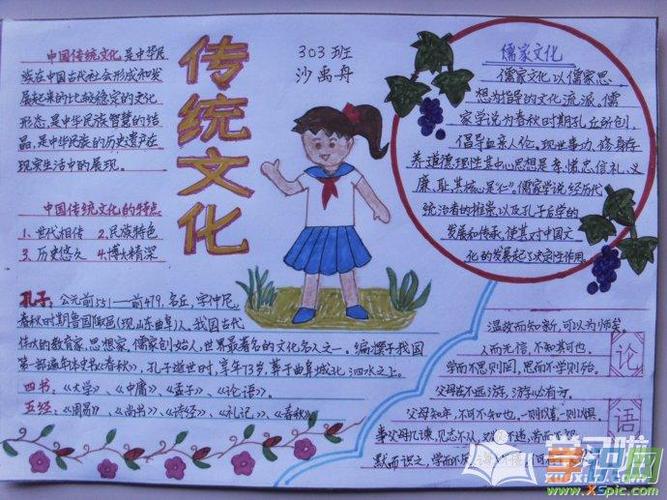 传统文化
303班
沙禹舟
中国传统文化是中华民
族在中国古代社会形成和发
展起来的比较稳定的文化
形态,是中华民族智慧的结
晶,是中华民族的历史遗产在
现实生活中的展现。
中国传统文化的特点
1、世代相传 2.民族特色
3、历史悠久 4.博大精深
儒家文化
儒家文化以儒家思
想为指导的文化流派。儒
家学说为春秋时期孔丘所创,
倡导血亲人伦、现世事功、修身存
养、道德理性,其中心思想是孝、悌、忠、信、礼、义、
廉、耻,其核心是“仁”。儒家学说经历代
统治者的推崇,以及孔子后学的
发展和传承,使其对中国文
化的发展起了决定性作用。
孔子:公元前551——前479,名丘,字仲尼,
春秋时期鲁国陬邑(现山东曲阜)人,我国古代
伟大的教育家,思想家,儒家创始人,世界最著名的文化名人之一。编撰了我国
第一部编年体史书《春秋》,孔子逝世时,享年73岁,葬于曲阜城北泗水之上。
四书:《大学》、《中庸》、《孟子》、《论语》。
五经:《周易》、《尚书》、《诗经》、《礼记》、《春秋》
论语
温故而知新,可以为师矣。
人而无信,不知其可也。
学而不思则罔,思而不学则殆。
父母在不远游,游必有方。
父母知年,不可不知也,一则以喜,一则以惧。
事父母几谏,见志不从,又敬不违,劳而不怨
默而识之,学而不厌
学习啦
学识网
www.xspic.com